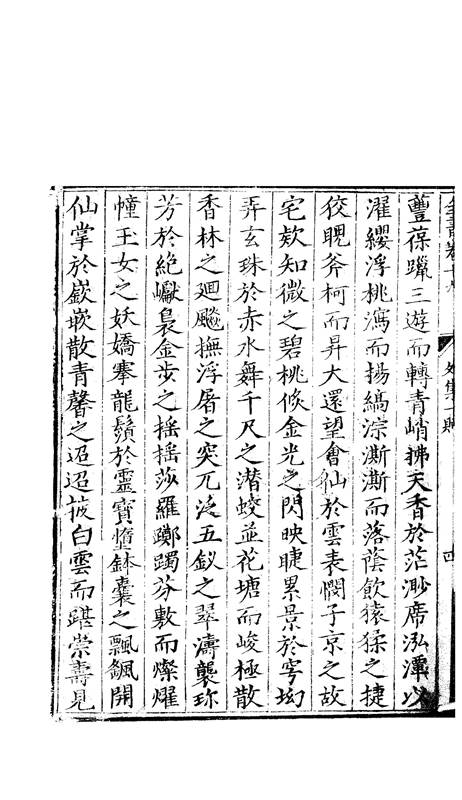 豐葆躐三遊而轉青峭拂天香於茫渺席泓渾以
濯纓浮桃瀉而揚縞淙澌澌而落蔭飲猿猱之捷
佼睍斧柯而昇大還望會仙於雲表憫子京之故
宅欬知微之碧桃倏金光之閃映睫累景於穹坳
弄玄珠於赤水舞千尺之潛蛟並花塘而峻極散
香林之迴飈撫浮屠之突兀泛五釵之翠濤襲珎
芳於絶巘裊金步之搖搖莎羅躑躅芬敷而燦燿
幢玉女之妖嬌搴龍鬚於靈寶墮鉢囊之飄颻開
仙掌於嶔嵌散青馨之迢迢披白雲而踸崇壽見